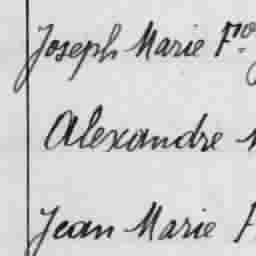 Joseph Marie
Alexandre
Jean Marie